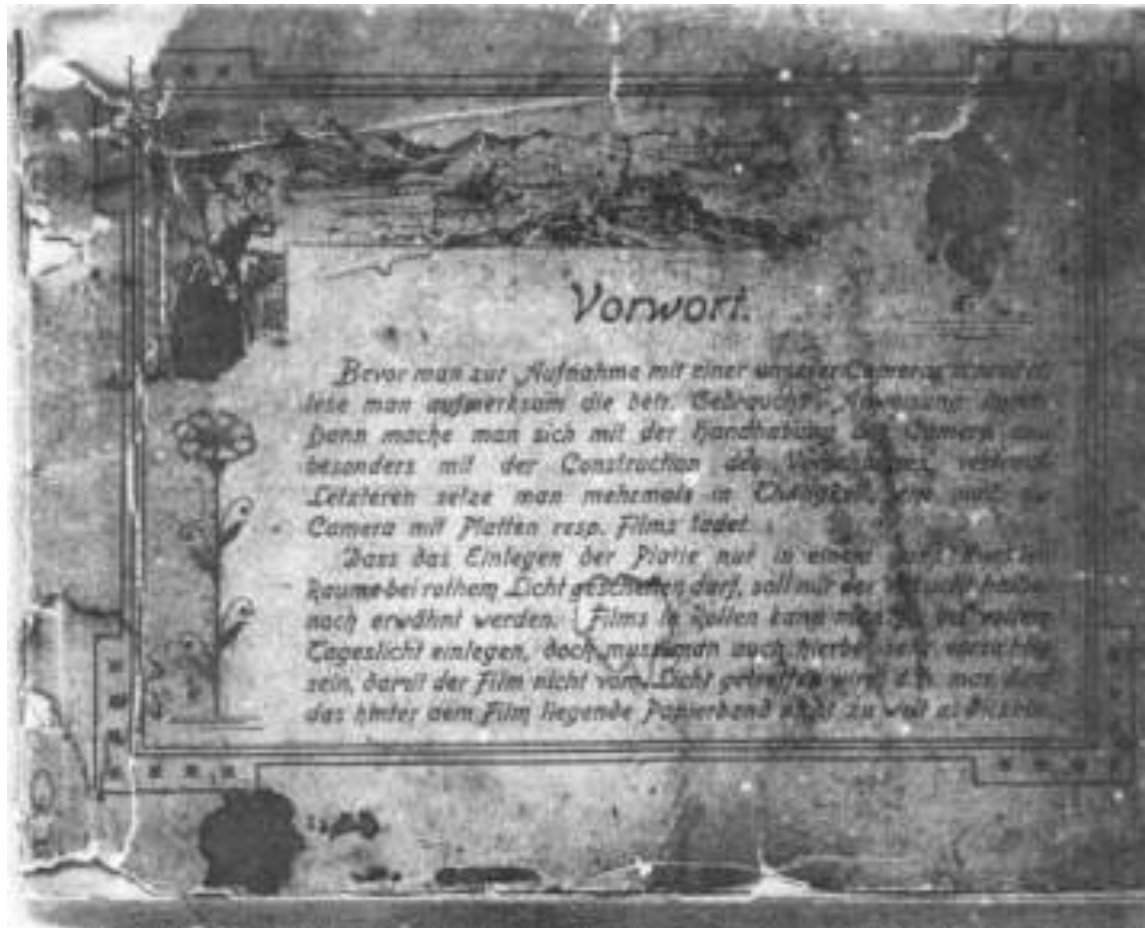 Vorwort.
Bevor man zur Aufnahme mit einer unserer Cameras schreitet,
lese man aufmerksam die betr. Gebrauchs-Anweisung
Dann mache man sich mit der Handhabung der Camera und
besonders mit der Construction des Verschlusses vertraut.
Letzteren setze man mehrmals in Thätigkeit, ehe man die
Camera mit Platten resp. Films ladet.
Dass das Einlegen der Platte nur in einem
Raume bei rothem Licht geschehen darf, soll nur der
noch erwähnt werden. Films in Rollen kann man
Tageslicht einlegen, doch muss man auch hierbei sehr vorsichtig
sein, damit der Film nicht vom Licht getroffen wird, d.h. man darf
das hinter dem Film liegende Papierband nicht zu weit